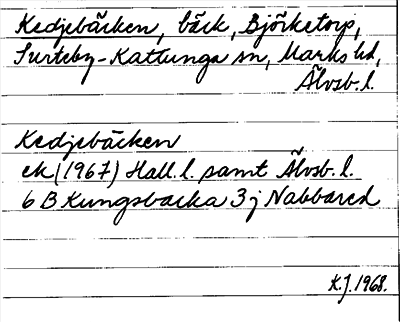 Kedjebäcken, bäck, Björketorp,
Surteby-Kattunga sn, Marks hd,
Älvsb. l.
Kedjebäcken
ek (1967) Hall. l. samt Älvsb. l.
6 B Kungsbacka 3 j Nabbared
K.J. 1968.